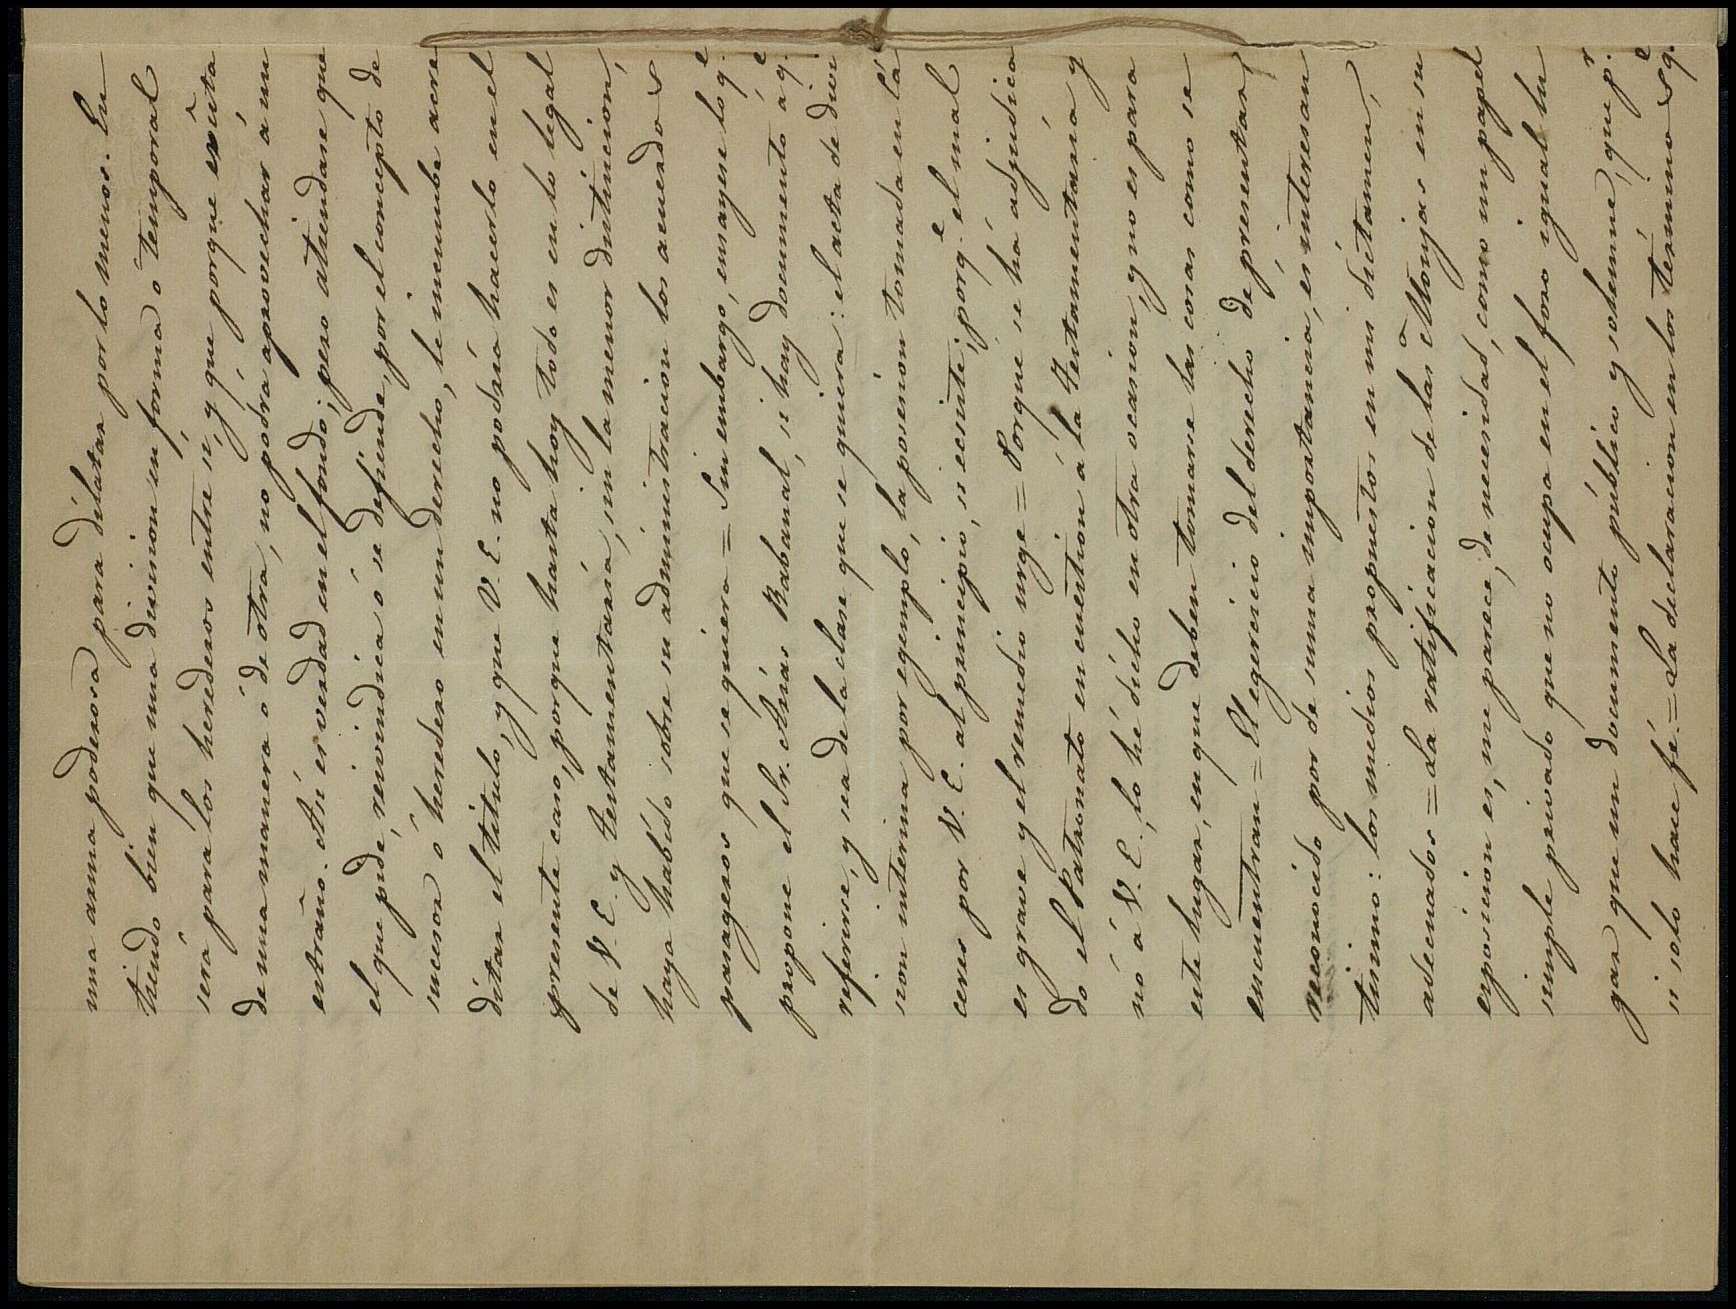 una arma poderosa para dilatar por lo menos. En
tiendo bien que una division en forma ó temporal
será para los herederos entre sí, y que porque exista
de una manera ó de otra, no podrá aprovechar á un
estraño. Asi es verdad en el fondo; pero atiendase que
el que pide, reivindica ó se defiende, por el concepto de
sucesor ó heredero en un derecho, le incumbe acre
ditar el titulo, y que V. E. no podria hacerlo en el
presente caso, porque hasta hoy todo es en lo legal
de V. E. y testamentaria, sin la menor distincion,
haya habido sobre su administracion los acuerdos
pasageros que se quiera = Sin embargo, ensayese lo q.e
propone el Sr. Arias Rabanal, si hay documento á q.e
referirse, y sea de la clase que se quiera: el acta de divi
sion interina por egemplo, la posesion tomada en la
ceres por V. E. al principio, si ecsiste; porq.e el mal
es grave y el remedio urge = Porque se há adjudica
do el Patronato en cuestion á la testamentaria y
nó á V. E., lo hé dicho en otra ocasion, y no es para
este lugar, en que deben tomarse las cosas como se
encuentran = El egercicio del derecho de presentar,
reconocido por de suma importancia, es interesan
tisimo: los medios propuestos en mi dictamen,
adecuados = La ratificacion de las Monjas en su
esposicion es, me parece, de necesidad, como un papel
simple privado que no ocupa en el foro igual lu
gar que un documento público y solemne, que p.r
si solo hace fé. = La declaracion en los terminos q.e